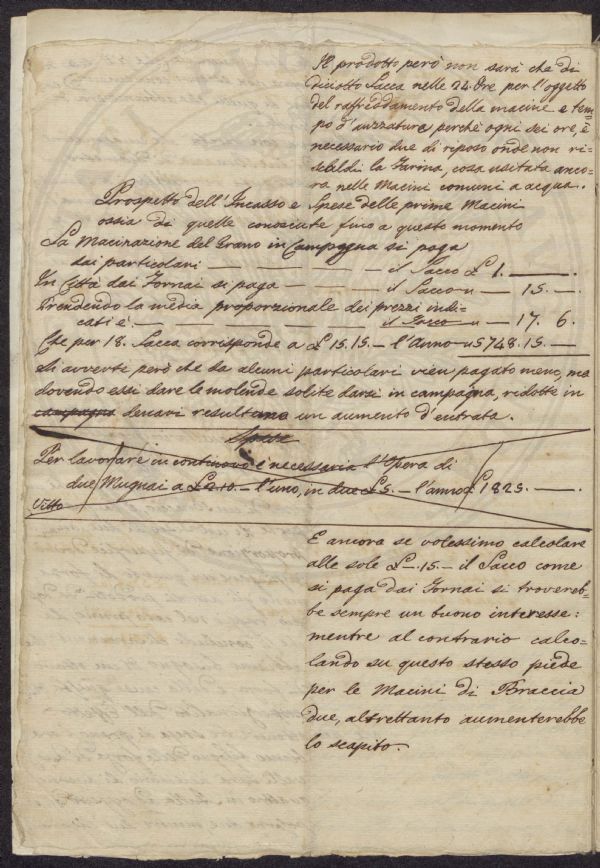 Il prodotto però non sarà che di
diciotto Sacca nelle 24. Ore per l'oggetto
del raffreddamento della macine e tem=
po d'auzzature perchè ogni sei ore, è
necessario due di riposo onde non ri=
scaldi la Farina, cosa usitata anco=
ra nelle Macini comuni a acqua.
Prospetto dell'Incasso e Spese delle prime Macini
ossia di quelle conosciute fino a questo momento
La Macinazione del Grano in Campagna si paga
dai particolari — — — — il Sacco £ 1. — .
In Città dai Fornai si paga — — — il Sacco " — 15. — .
Prendendo la media proporzionale dei prezzi indi=
cati è — — — — — il Sacco " — 17. 6.
Che per 18. Sacca corrisponde a £ 15. 15. — l'Anno " 5748. 15. —
Si avverte però che da alcuni particolari vien pagato meno, ma
dovendo essi dare le molende solite darsi in campagna, ridotte in
campagna denari resultano un aumento d'entrata.
Spese
Per lavorare in continuovo è necessaria l'Opera di
due Mugnai a £ 2. 10. — l'uno, in due £ 5. — l'anno £ 1825. — .
Vitto
E ancora se volessimo calcolare
alle sole £ — 15. — il Sacco come
si paga dai Fornai si trovereb=
be sempre un buono interesse:
mentre al contrario calco=
lando su questo stesso piede
per le Macini di Braccia
due, altrettanto aumenterebbe
lo scapito.